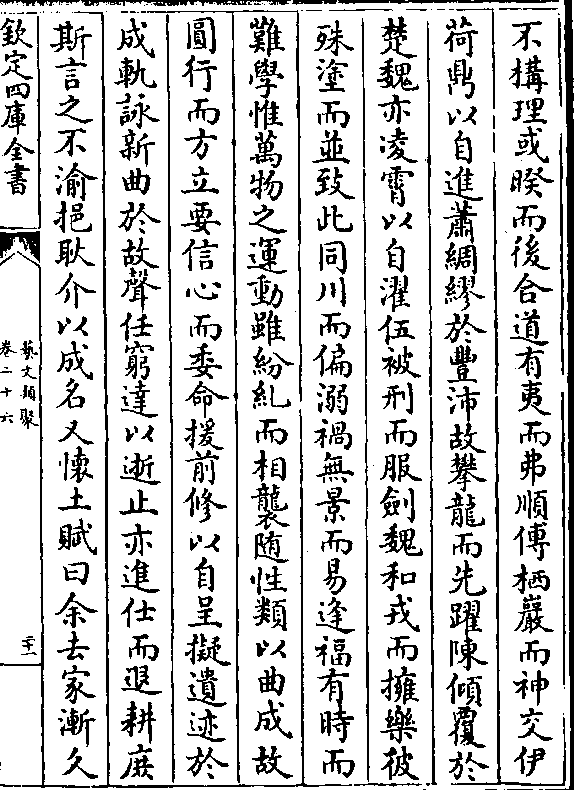 不構理或暌而後合道有夷而弗順傅栖巖而神交伊
荷鼎以自進蕭綢繆於豐沛故攀龍而先躍陳傾覆於
楚魏亦凌霄以自濯伍被刑而服劍魏和戎而擁樂彼
殊塗而並致此同川而偏溺禍無景而易逢福有時而
難學惟萬物之運動雖紛糺而相襲随性類以曲成故
圓行而方立要信心而委命援前修以自呈擬遺迹於
成軌詠新曲於故聲任窮達以逝止亦進仕而退耕庻
斯言之不渝挹耿介以成名又懷土賦曰余去家漸久
欽定四庫全書
藝文類聚
卷二十六
二十一